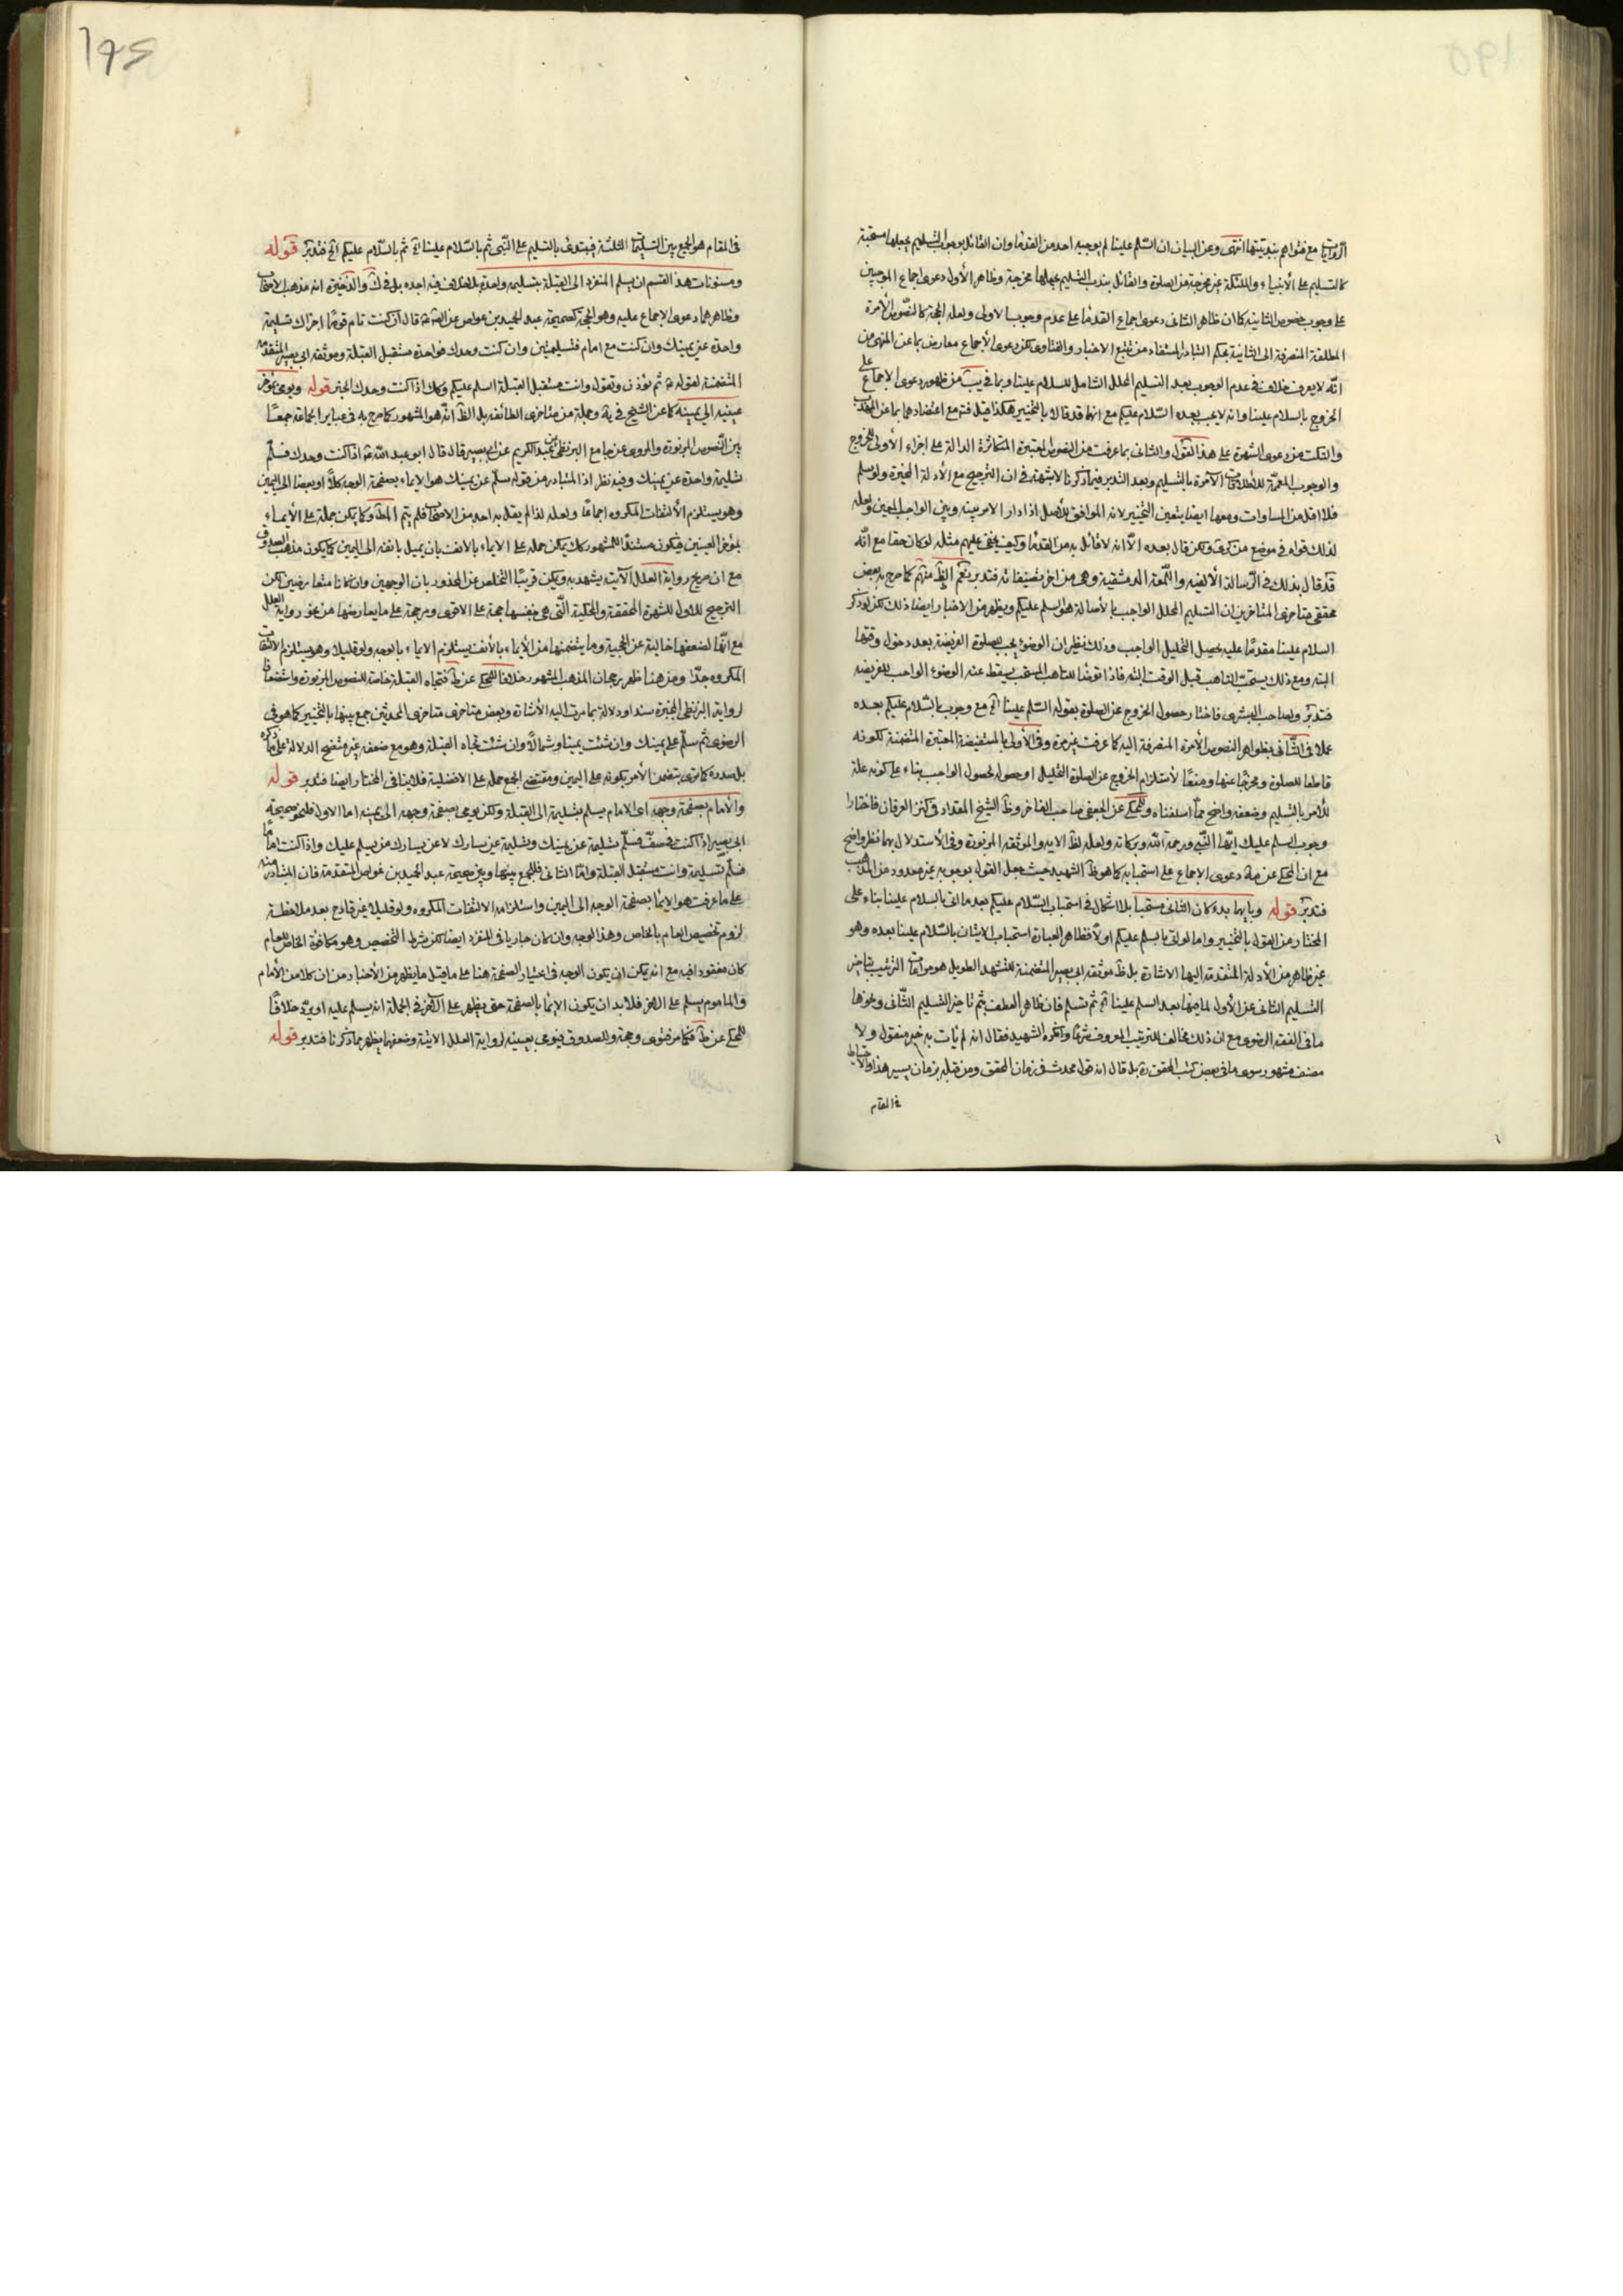 الروايات مع فتواهم بندبيتها انتهى وعن البيان ان السلم علينا لم يوجبه احد من القدماء وان القائل بوجوب التسليم يجعلها مستحبة
كالتسليم على الأنبياء والملئكة غير مخرجة من الصلوة والقائل بندب التسليم يجعلها مخرجة وظاهر الأول دعوى اجماع الموجبين
على وجوب خصوص الثانية كما ان ظاهر الثانى دعوى اجماع القدماء على عدم وجوب الاولى ولعله الحجة كالنصوص الآمرة
المطلقة المنصرفة الى الثانية بحكم التبادر المستفاد من تتبع الاخبار والفتاوى لكن دعوى الأجماع معارض بما عن المنتهى من
انه لا يعرف خلاف فى عدم الوجوب بعد التسليم المحلل الشامل للسلام علينا وبما فى يب من ظهور دعوى الاجماع على
الخروج بالسلام علينا وانه لا يجب بعده السلام عليكم مع انهما قد قالا بالتخيير هكذا قيل فتم مع اعتضادهما بما عن المهذب
والنكت من دعوى الشهرة على هذا القول والثانى بما عرفت من النصوص المعتبرة المتكاثرة الدالة على اجزاء الأولى للخروج
والوجوب المعممة للاطلاقات الآمرة بالتسليم وبعد التدبر فيما ذكرنا لا شبهة فى ان الترجيح مع الأدلة المخيرة ولو سلم
فلا اقل من المساوات ومعها ايضا يتعين التخيير لانه الموافق للأصل اذا دار الامر بينه وبين الواجب المعين ولعله
لذلك قواه فى موضع من كرى ولكن قال بعده الا انه لا قائل به من القدماء وكيف يخفى عليهم مثله لو كان حقا مع انه
قد قال بذلك فى الرسالة الألفيه واللمعة الدمشقية وهى من اخر تصنيفاته فتدبر نعم الظ منهم كما صرح به بعض
محققى متاخرى المتاخرين ان التسليم المحلل الواجب بالأصالة هو السلم عليكم ويظهر من الاخبار ايضا ذلك لكن لو ذكر
السلام علينا مقدما عليه يحصل التحليل الواجب وذلك نظير ان الوضوء يجب للصلوة الفريضة بعد دخول وقتها
البته ومع ذلك يستحب التاهب قبل الوقت البته فاذا توضأ للتاهب المستحب يسقط عنه الوضوء الواجب للفريضه
فتدبر ولصاحب البشرى فاختار حصول الخروج عن الصلوة بقوله السلم علينا آه مع وجوب السلام عليكم بعده
عملا فى الثانى بظواهر النصوص الآمرة المنصرفة اليه كما عرفت غير مرة وفى الأولى بالمستفيضة المعتبرة المتضمنة لكونه
قاطعا للصلوة ومخرجا عنها ومنعا لاستلزام الخروج عن الصلوة التحليل او حصوله لحصول الواجب بناء على كونه علة
للأمر بالتسليم وضعفه واضح مما اسلفناه وللمحكى عن الجعفى وصاحب الفاخر وظ الشيخ المقداد فى كنز العرفان فاختارا
وجوب السلم عليك ايها النبى ورحمة الله وبركاته ولعله لظ الايه والموثقه المزبورة وفى الأستدلال بهما نظر واضح
مع ان المحكى عن مة دعوى الاجماع على استحبابه كما هو ظ الشهيد حيث جعل القول بوجوبه غير معدود من المذهب
فتدبر قوله وبايهما بدء كان الثانى مستحبا بلا اشكال فى استحباب السلام عليكم بعد ما اتى بالسلام علينا بناء على
المختار من القول بالتخيير واما لو اتى بالسلم عليكم اولا فظاهر العبارة استحباب الاتيان بالسلام علينا بعده وهو
غير ظاهر من الأدلة المتقدمة اليها الاشارة بل ظ موثقه ابى بصير المتضمنة للتشهد الطويل هو مراعات الترتيب بتاخير
التسليم الثانى عن الأول لما فيها بعد السلم علينا آه ثم تسلم فان ظاهر العطف بثم تاخير التسليم الثانى ونحوها
ما فى الفقه الرضوى مع ان ذلك مخالف للترتيب الموروث شرعا وانكره الشهيد فقال انه لم يات به خبر منقول ولا
مصنف مشهور سوى ما فى بعض كتب المحقق ره بل قال انه قول محدث فى زمان المحقق ومن قبله بزمان يسير هذا والاحتياط
فى المقام
فى المقام هو الجمع بين التسليمات الثلثة فيبتدئ بالتسليم على النبى ثم بالسلام علينا آه ثم بالسلام عليكم آه فتدبر قوله
ومسنونات هذا القسم ان يسلم المنفرد الى القبلة بتسليمه واحدة بلا خلاف فيه اجده بل فى ك والذخيرة انه مذهب الاصحاب
وظاهرهما دعوى الاجماع عليه وهو الحجة كصحيحة عبد الحميد بن عواض عن الصادق ع قال ان كنت تام قوما اجزاك تسليمة
واحدة عن يمينك وان كنت مع امام فتسليمتين وان كنت وحدك فواحدة مستقبل القبلة وموثقه ابى بصير المتقدمه
المتضمنة لقوله ع ثم تؤذن وتقول وانت مستقبل القبلة السلم عليكم وكذلك اذا كنت وحدك الخبر قوله ويومى بمؤخر
عينيه الى يمينه كما عن الشيخ فى ية وجملة من متاخرى الطائفه بل الظ انه هو المشهور كما صرح به فى عباير الجماعة جمعا
بين النصوص المزبورة والمروى عن جامع البزنطى عن عبد الكريم عن ابى بصير قال قال ابو عبد الله ع اذا كنت وحدك فسلم
تسليمة واحدة عن يمينك وفيه نظر اذ المتبادر من قوله سلم عن يمينك هو الايماء بصفحة الوجه كلا او بعضا الى اليمين
وهو يستلزم الألتفات المكروه اجماعا ولعله لذا لم يقل به احد من الاصحاب فلم يتم المط وكما يمكن حمله على الأيماء
بمؤخر العينين فيكون مستندا للمشهور كك يمكن حمله على الايماء بالانف بان يميل بانفه الى اليمين كما يكون مذهب الصدوق
مع ان صريح رواية العلل الآتيه يشهد به ويكن قريبا التخلص عن المحذور بان الوجهين وان كانا متعارضين لكن
الترجيح للاول للشهرة المحققة والمحكية التى هى بنفسها حجة على الاقوى ومرجحة على ما يعارضها من نحو رواية العلل
مع انها لضعفها خالية عن الحجية وما يتضمنها من الأيماء بالأنف يستلزم الايماء بالوجه ولو قليلا وهو يستلزم الالتفات
المكروه جدا ومن هنا ظهر رجحان المذهب المشهور خلافا للمحكى عن ط فتجاه القبلة خاصة للنصوص المزبورة واستضعافا
لرواية البزنطى المخيرة سندا ودلالة بما مرت اليه الأشارة وبعض متاخرى متاخرى المحدثين جمع بينها بالتخيير كما هو فى
الرضوى ثم سلم على يمينك وان شئت يمينا وشمالا وان شئت تجاه القبلة وهو مع ضعفه غير متضح الدلالة على ما ذكره
بل صدره كما ترى يتضمن الأمر بكونه على اليمين ومقتضى الجمع حمله على الافضلية فلا ينافى المختار ايضا فتدبر قوله
والأمام بصفحة وجهه اى الامام يسلم بتسليمة الى القبلة ولكن يومى بصفحة وجهه الى يمينه اما الاول فلنحو صحيحة
ابى بصير اذا كنت فى صف فسلم تسليمة عن يمينك وتسليمة عن يسارك لان عن يسارك من يسلم عليك واذا كنت اماما
فسلم تسليمة وانت مستقبل القبلة واما الثانى فللجمع بينها وبين صحيحة عبد الحميد بن عواض المتقدمة فان المتبادر منه
على ما عرفت هو الايماء بصفحة الوجه الى اليمين واستلزامه الالتفات المكروه ولو قليلا غير قادح بعد ملاحظة
لزوم تخصيص العام بالخاص وهذا الوجه وان كان جاريا فى المنفرد ايضا لكن شرط التخصيص وهو مكافؤة الخاص للعام
كان مفقودا فيه مع انه يمكن ان يكون الوجه فى اعتبار الصفحة هنا على ما قيل ما يظهر من الأخبار من ان كلا من الأمام
والماموم يسلم على الاخر فلا بد ان يكون الإيماء بالصفحة حتى يظهر على الآخر فى الجملة انه يسلم عليه او يرد خلافا
للمحكى عن ط فكما مر فتوى وحجة والصدوق فيومى بعينيه لرواية العلل الاتية وضعفهما يظهر مما ذكرنا فتدبر قوله